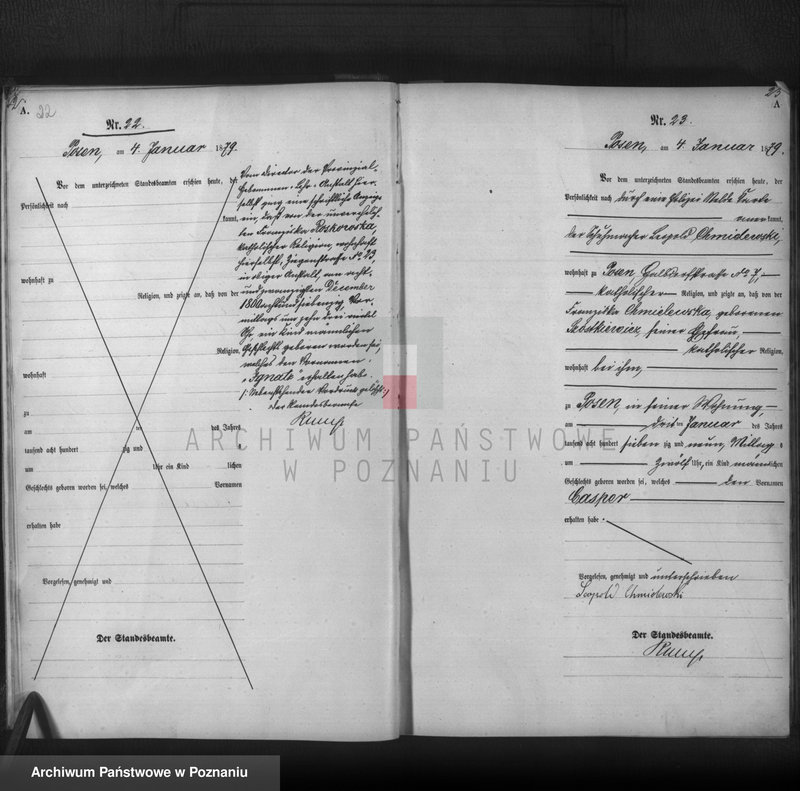 A. 22
Nr. 22.
Posen, am 4. Januar 1879.
Vor dem unterzeichneten Standesbeamten erschien heute, der
Persönlichkeit nach
kannt,
wohnhaft zu
Religion, und zeigte an, daß von der
Religion,
wohnhaft
zu
am des Jahres
tausend acht hundert zig und
um Uhr ein Kind lichen
Geschlechts geboren worden sei, welches Vornamen
erhalten habe
Vorgelesen, genehmigt und
Der Standesbeamte.
Vom Director der Provinzial-
Hebammen-Lehr-Anstalt hier-
selbst ging eine schriftliche Anzeige
ein, daß von der unverehelich-
ten Franziska
katholischer Religion, wohnhaft
hierselbst, No 23,
in obiger Anstalt, am acht-
undzwanzigten December
1800achtundsiebenzig, Vor-
mittags um zehn drei viertel
Uhr ein Kind männlichen
Geschlechts geboren worden sei,
welches den Vornamen
"Ignatz" erhalten habe.
Vordruck gelöscht
Der Standesbeamte
23
A
Nr. 23.
Posen, am 4. Januar 1879.
Vor dem unterzeichneten Standesbeamten erschien heute, der
Persönlichkeit nach durch eine Polizei Melde Karte
anerkannt,
der Schuhmacher Leopold Chmielewski,
wohnhaft zu Posen, No 7,
katholischer Religion, und zeigte an, daß von der
Franziska Chmielewska, geborenen
seiner Ehefrau,
katholischer Religion,
wohnhaft bei ihm,
zu Posen, in seiner Wohnung,
am drei ten Januar des Jahres
tausend acht hundert sieben zig und neun, Mittags
um zwölf Uhr, ein Kind männlichen
Geschlechts geboren worden sei, welches den Vornamen
Casper
erhalten habe.
Vorgelesen, genehmigt und unterschrieben
Leopold Chmielewski
Der Standesbeamte.
ARCHIWUM PAŃSTWOWE
W POZNANIU
Archiwum Państwowe w Poznaniu